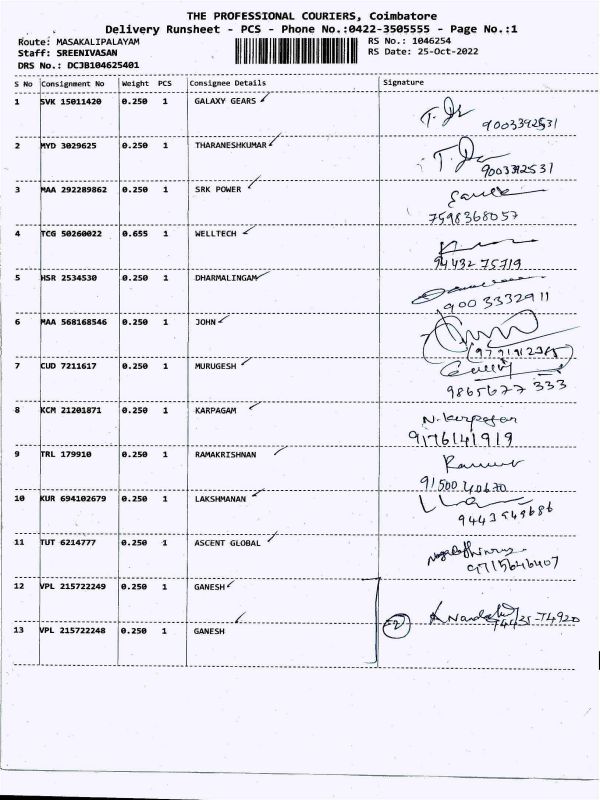 THE PROFESSIONAL COURIERS, Coimbatore
Delivery Runsheet - PCS - Phone No.:0422-3505555 - Page No.:1
Route: MASAKALIPALAYAM RS No.: 1046254
Staff: SREENIVASAN RS Date: 25-Oct-2022
DRS No.: DCJB104625401
S No Consignment No Weight PCS Consignee Details Signature
1 SVK 15011420 0.250 1 GALAXY GEARS
9003392531
2 MYD 3029625 0.250 1 THARANESHKUMAR
9003392531
3 MAA 292289862 0.250 1 SRK POWER
7598368057
4 TCG 50260022 0.655 1 WELLTECH
94432 75719
5 HSR 2534530 0.250 1 DHARMALINGAM
900 3332911
6 MAA 568168546 0.250 1 JOHN
7 CUD 7211617 0.250 1 MURUGESH
9865677 333
8 KCM 21201871 0.250 1 KARPAGAM
9176141919
9 TRL 179910 0.250 1 RAMAKRISHNAN
91500 40670
10 KUR 694102679 0.250 1 LAKSHMANAN
9443549686
11 TUT 6214777 0.250 1 ASCENT GLOBAL
9715646407
12 VPL 215722249 0.250 1 GANESH
13 VPL 215722248 0.250 1 GANESH